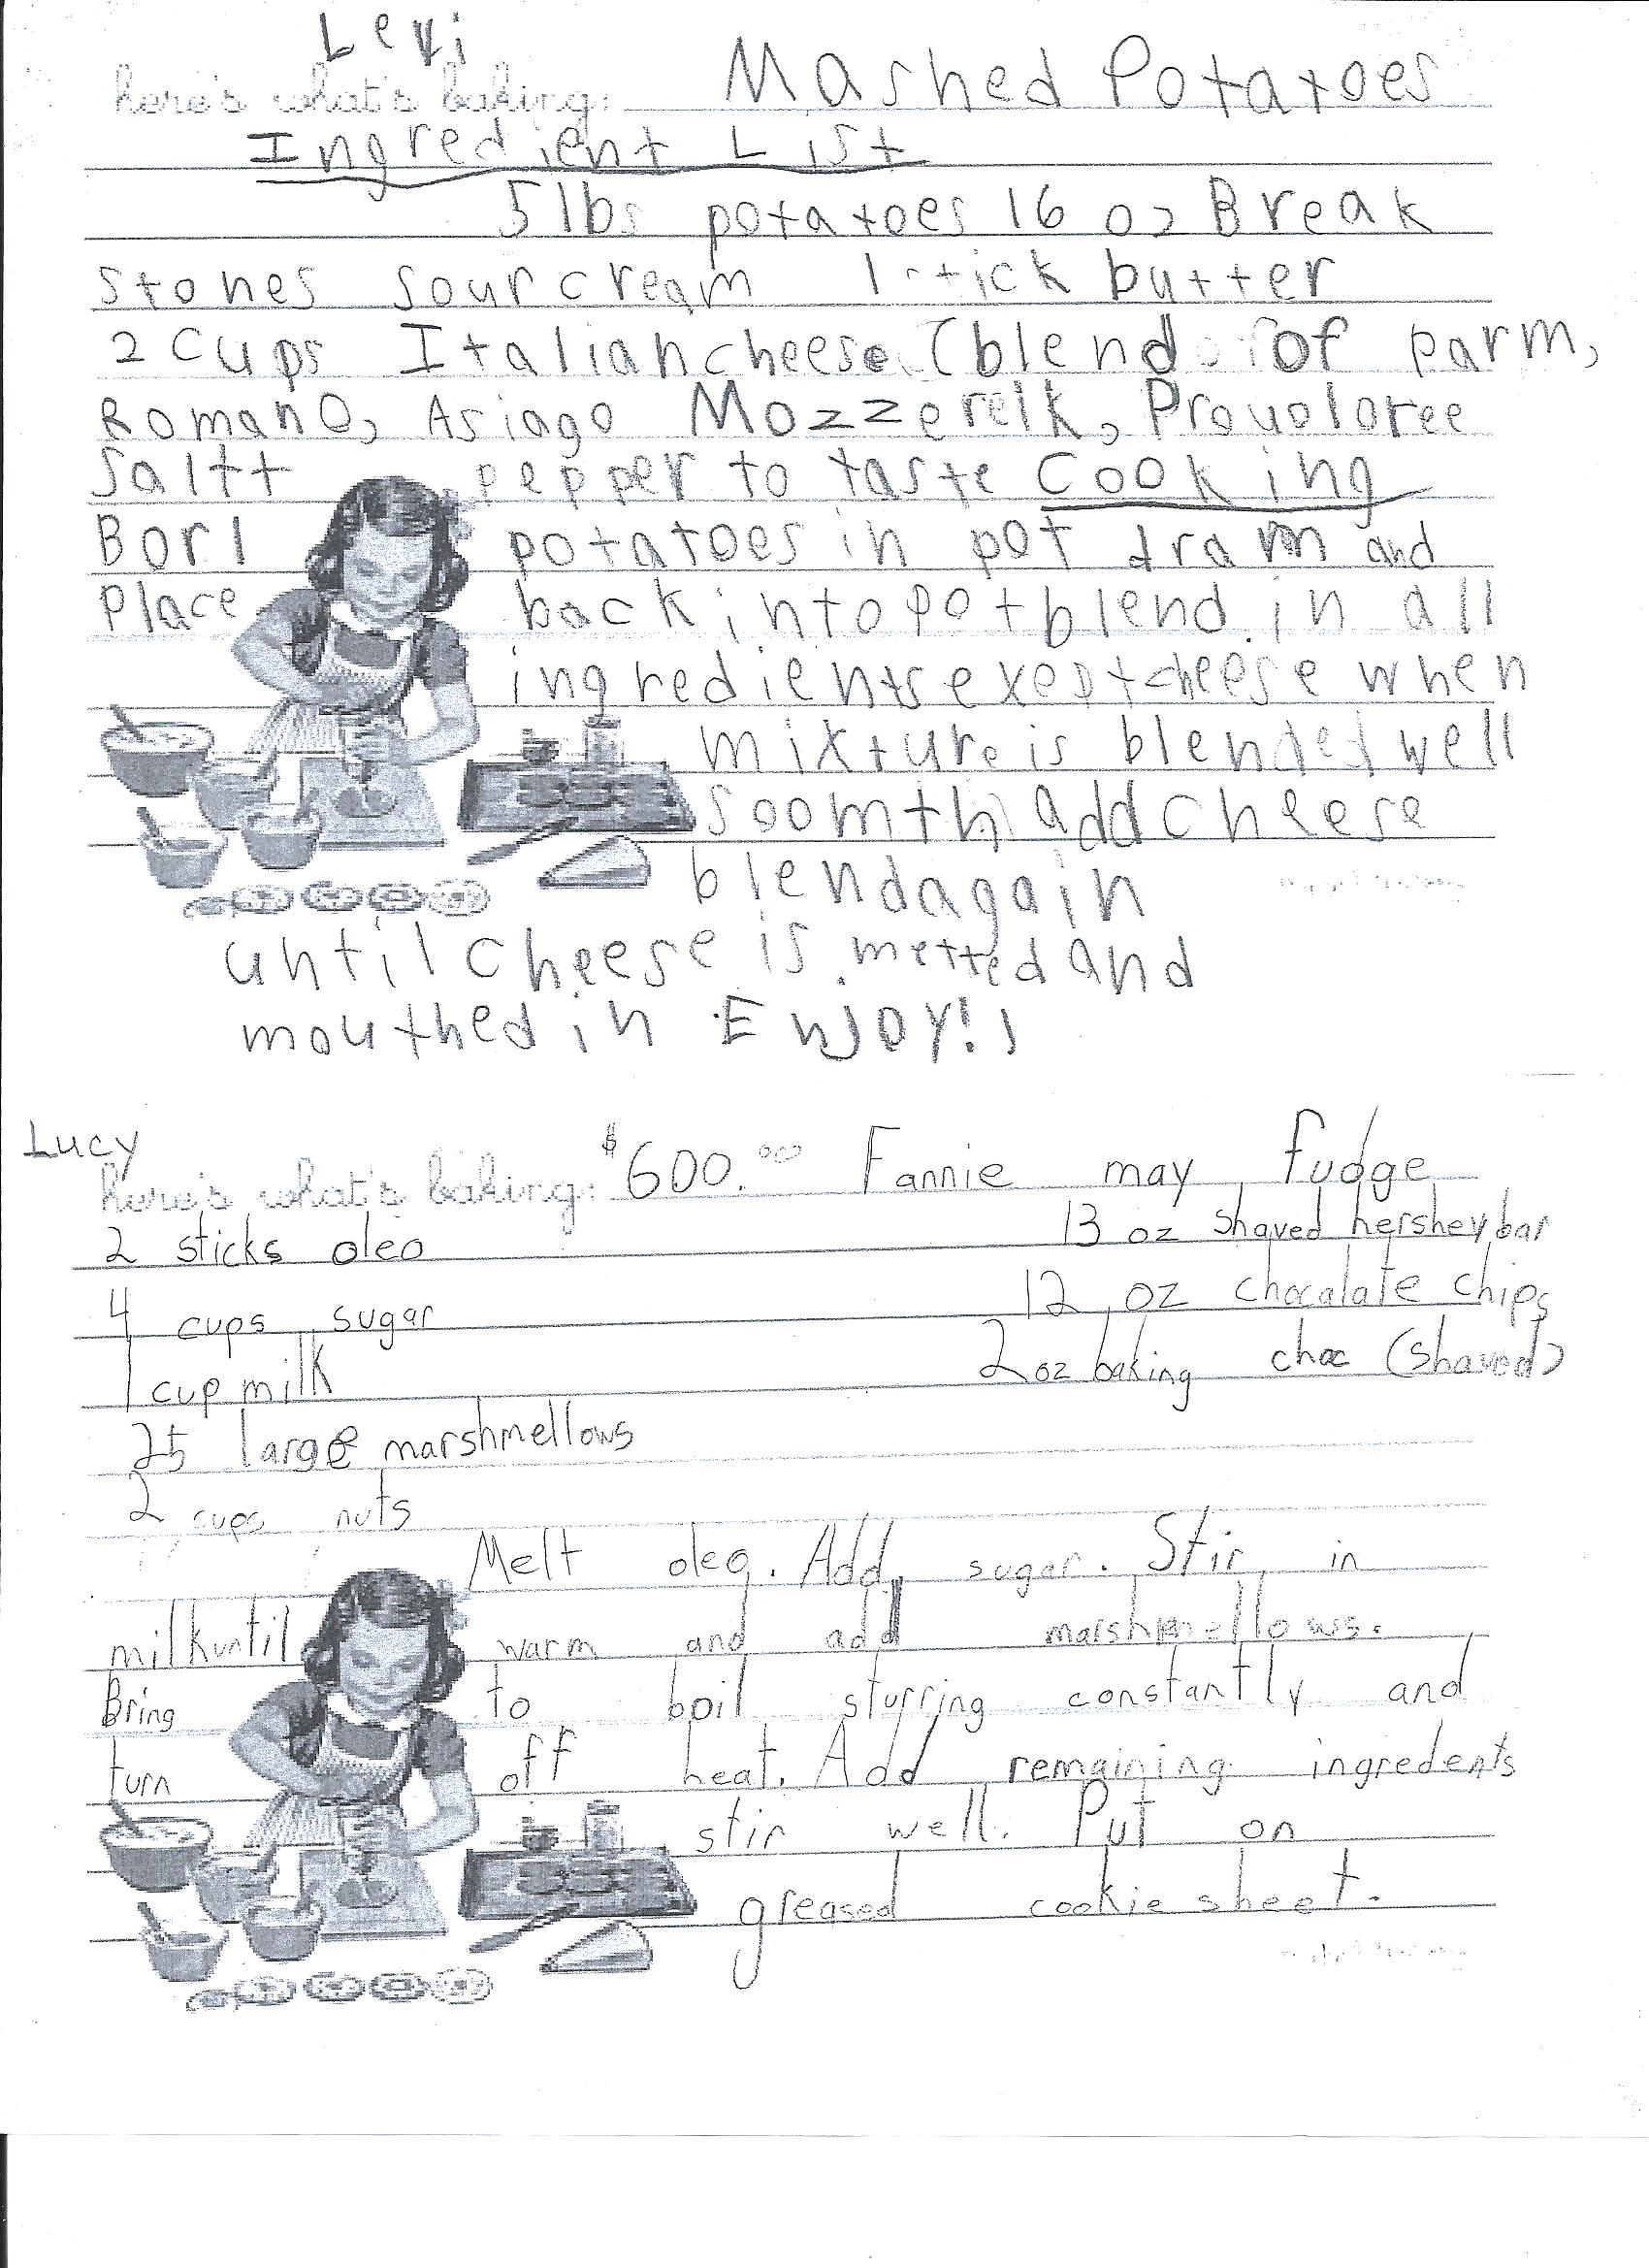 Levi
here's what's baking: Mashed Potatoes
Ingredient List
5 lbs potatoes 16 oz Break
stones sour cream 1 stick butter
2 Cups Italian cheese (blend of parm,
Romano, Asiago Mozzerelk, Prouoloree
Saltt pepper to taste Cooking
Borl potatoes in pot dram and
Place back into pot blend in all
ingredients exept cheese when
mixture is blended well
soomth add cheese
blend again
until cheese is metted and
mouthed in Enjoy!!
Lucy
here's what's baking: $600.00 Fannie may fudge
2 sticks oleo 13 oz shaved hershey bar
4 cups sugar 12 oz chocalate chips
1 cup milk 2 oz baking choc (shaved)
25 large marshmellows
2 cups nuts
Melt oleo. Add sugar. Stir in
milk until warm and add marshmellows.
Bring to boil sturring constantly and
turn off heat. Add remaining ingredents
stir well. Put on
greased cookie sheet.